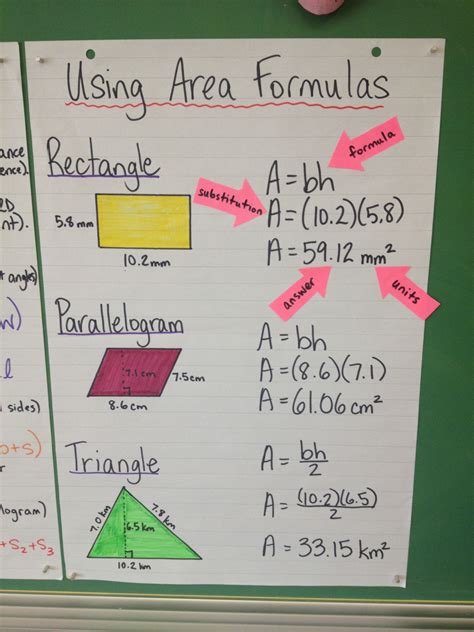 Using Area Formulas
ance
ence).
ED
nt).
t angles)
w)
l
sides)
o+s)
r
logram)
+S₂+S₃
Rectangle
5.8 mm
10.2mm
formula
substitution
A=bh
A=(10.2)(5.8)
A=59.12 mm²
answer
units
Parallelogram
7.1 cm
7.5cm
8.6cm
A=bh
A=(8.6)(7.1)
A=61.06 cm²
Triangle
7.0 km
7.8 km
6.5 km
10.2 km
A= bh/2
A= (10.2)(6.5)/2
A= 33.15 km²